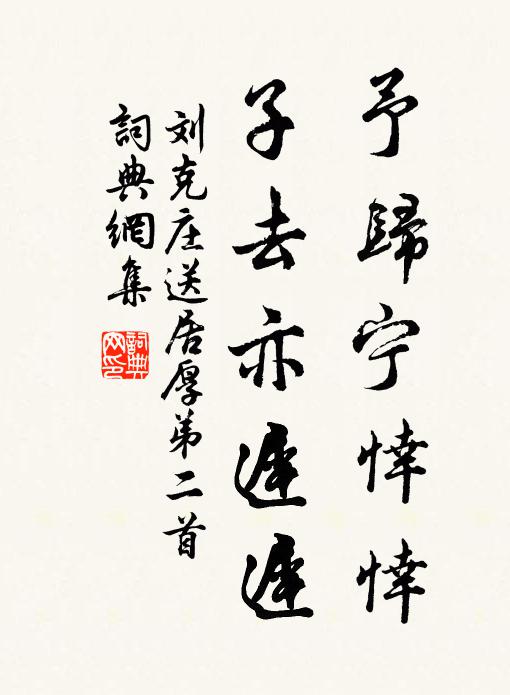 予歸宁悻悻
子去亦遲遲
刘克庄送居厚第二首
詞典網集
詞典網印